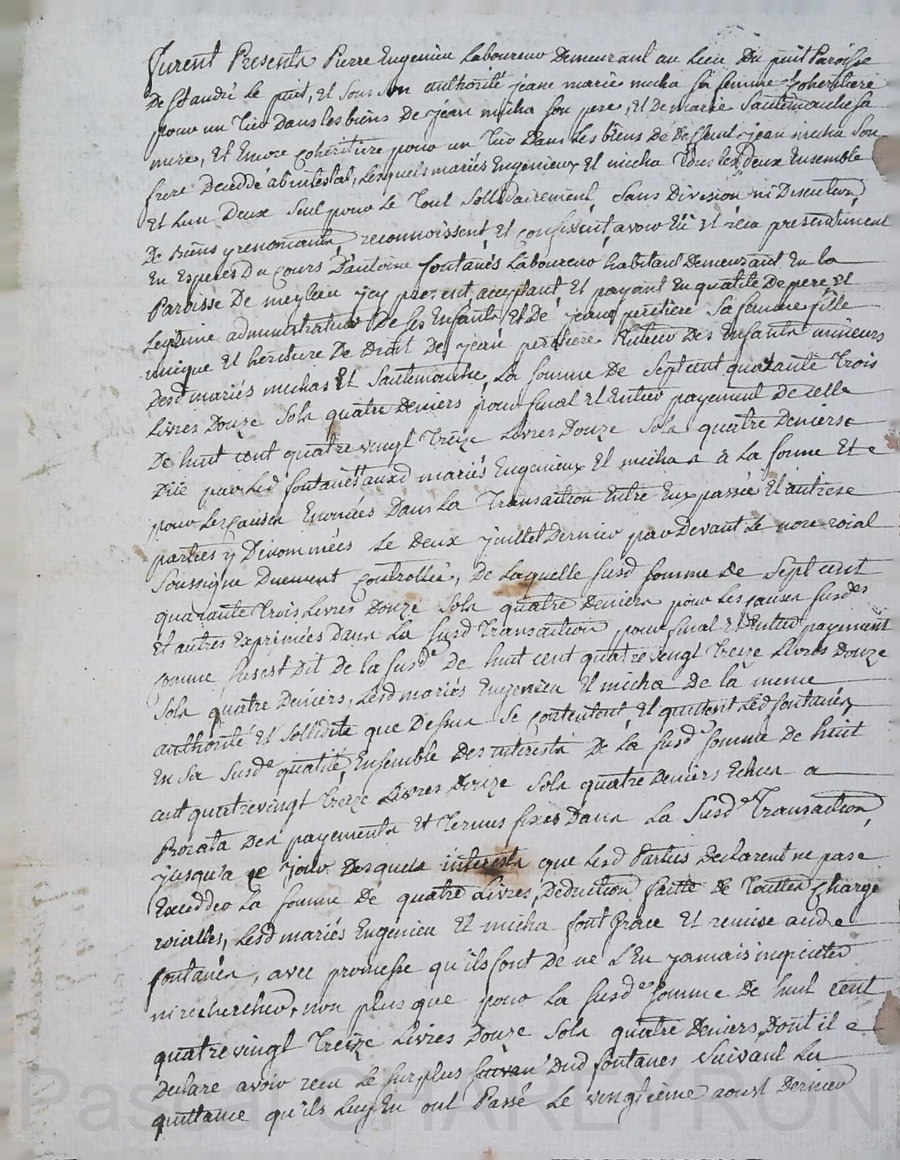 Furent Presents Pierre Eugenieu Laboureur Demeurant au Lieu Du puit Paroisse
De St andré le puit, Et sous son authorité jeane marie micha sa femme Coheritiere
pour un Tier Dans les biens de jean micha son pere, et De marie Sautemouche sa
mere, Et Encore Coheritiere pour un Tier Dans Les biens de Deffunt jean micha son
frere Decedé ab intestat, Lesquels mariés Eugenieux Et micha Tous les deux Ensemble
Et Lun Deux Seul pour le Tout Sollidairement, Sans Division ni Discution
De Biens y renoncants, reconnoissent Et Confessent, avoir Eu Et reçu presentement
En Especes Du Cours D'antoine fontanés Laboureur habitant Demeurant En la
Paroisse De meylieu jcy present, acceptant, Et payant En qualité De pere, et
Legitime administrateur De ses Enfants, Et De jeane perdriere Sa femme fille
unique Et heritiere De Droit De jean perdriere Tuteur Des Enfants mineurs
Desd mariés michas Et Sautemouche, La somme De Sept cent quarante Trois
Livres Douze Sols quatre Deniers pour final Et Entier payement De celle
De huit cent quatre vingt Treize Livres Douze Sols quatre Deniers
Due par Led fontanés auxd mariés Eugenieux Et micha a La forme Et
pour Les Causes Enoncées Dans La Transaction Entre Eux passée Et autres
parties y Denommées Le Deux juillet Dernier par Devant Le nore roial
Soussigné Duement Controllée, De Laquelle susd somme De Sept cent
quarante Trois Livres Douze Sols quatre Deniers pour Les causes susdes
Et autres Exprimées Dans La susd Transaction pour final Et Entier payement
comme susest Dit De la susde De huit cent quatre vingt Treize Livres Douze
Sols quatre Deniers, Lesd mariés Eugenieu Et micha De la meme
authorité Et Sollidité que Dessus Se contentent, Et quittent Led fontanés
En Sa Susde qualité, Ensemble Des interests De La susde somme De huit
cent quatre vingt Treize Livres Douze Sols quatre Deniers Echus a
Rorata Des payements Et Termes fixés Dans La Susde Transaction
jusqu'a ce jour Desquels interests que Lesd Parties Declarent ne pas
Exceder La somme De quatre Livres, Deduction faitte De Touttes Charge
roialles, Lesd mariés Eugenieu Et micha font grace Et remise aud
fontanés, avec promesse qu'ils font De ne L'En jamais inquieter
ni rechercher, non plus que pour La susde somme De huit cent
quatre vingt Treize Livres Douze Sols quatre Deniers, Dont il
Declare avoir recu Le surplus Dud fontanes Suivant La
quittance qu'ils Luy En ont Passé Le vingtieme aoust Dernier
Pascal CHARLEYRON